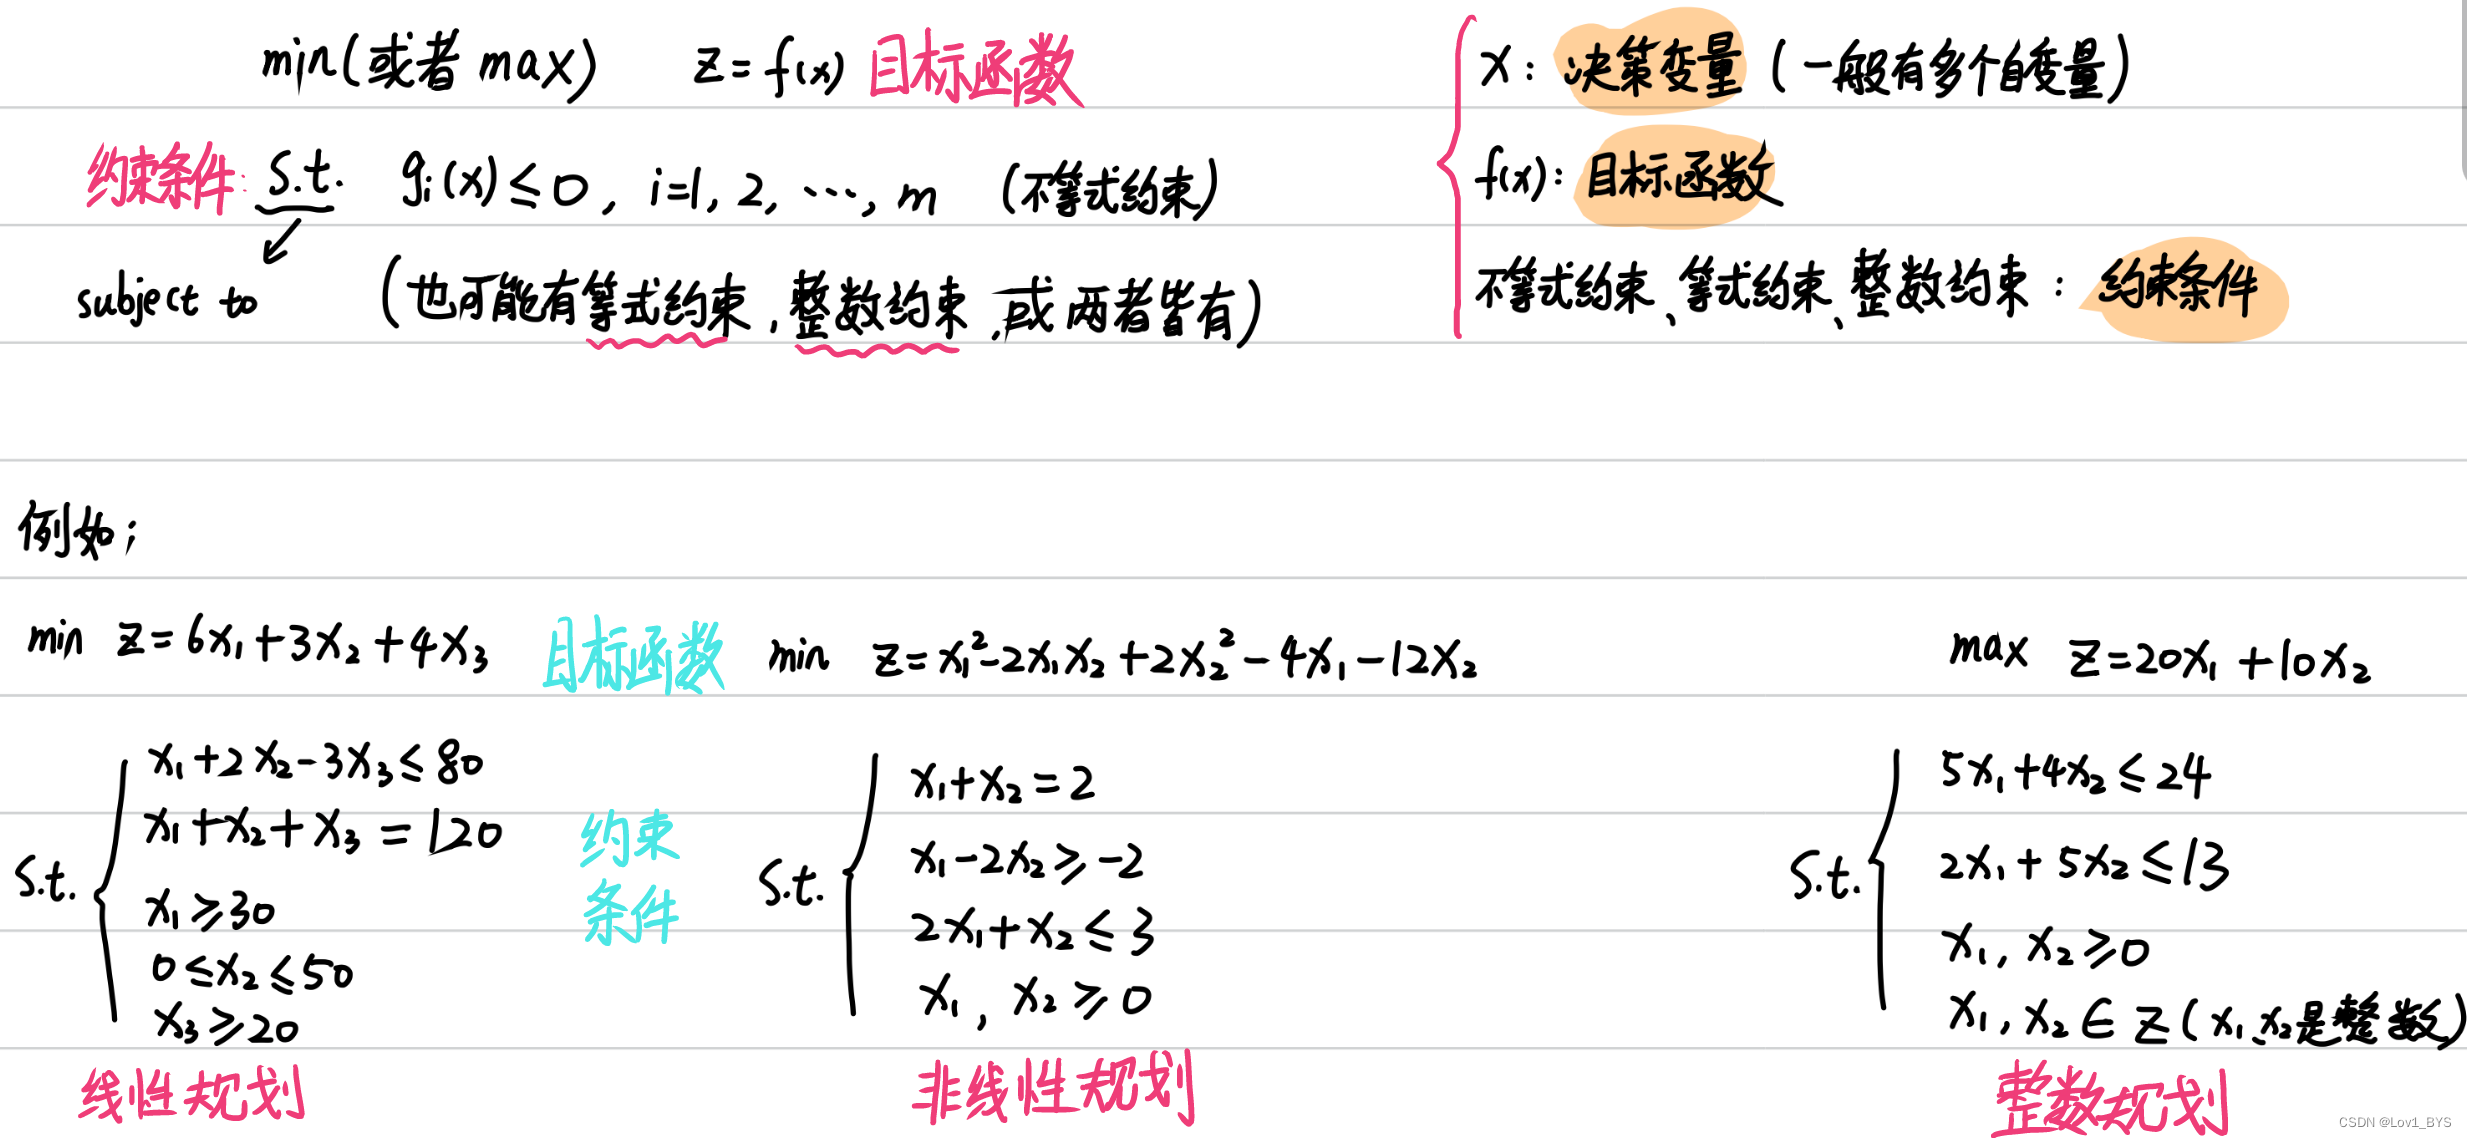 min(或者 max) z=f(x) 目标函数
约束条件: s.t. gᵢ(x)≤0, i=1, 2, ⋯, m (不等式约束)
subject to (也可能有等式约束,整数约束,或两者皆有)
x: 决策变量 (一般有多个自变量)
f(x): 目标函数
不等式约束、等式约束、整数约束: 约束条件
例如;
min z=6x₁+3x₂+4x₃ 目标函数
s.t.
x₁+2x₂-3x₃≤80
x₁+x₂+x₃=120
x₁≥30
0≤x₂≤50
x₃≥20
约束
条件
线性规划
min z=x₁²-2x₁x₂+2x₂²-4x₁-12x₂
s.t.
x₁+x₂=2
x₁-2x₂≥-2
2x₁+x₂≤3
x₁, x₂≥0
非线性规划
max z=20x₁+10x₂
s.t.
5x₁+4x₂≤24
2x₁+5x₂≤13
x₁, x₂≥0
x₁, x₂∈Z(x₁、x₂是整数)
整数规划
CSDN @Lov1_BYS